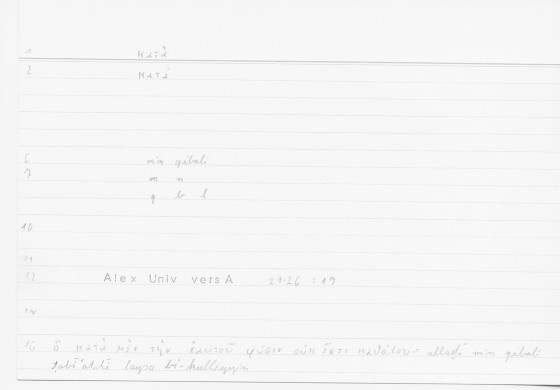 1 κατὰ
2 κατά
6 min qibali
7 m n
q b l
10
11
13 Alex Univ vers A 21.26 : 19
14
16 ὃ κατὰ μὲν τὴν ἑαυτοῦ φύσιν οὐκ ἔστι καθόλου - alladī min qibali
ṭabīʿatihī laysa bi-kulliyyin